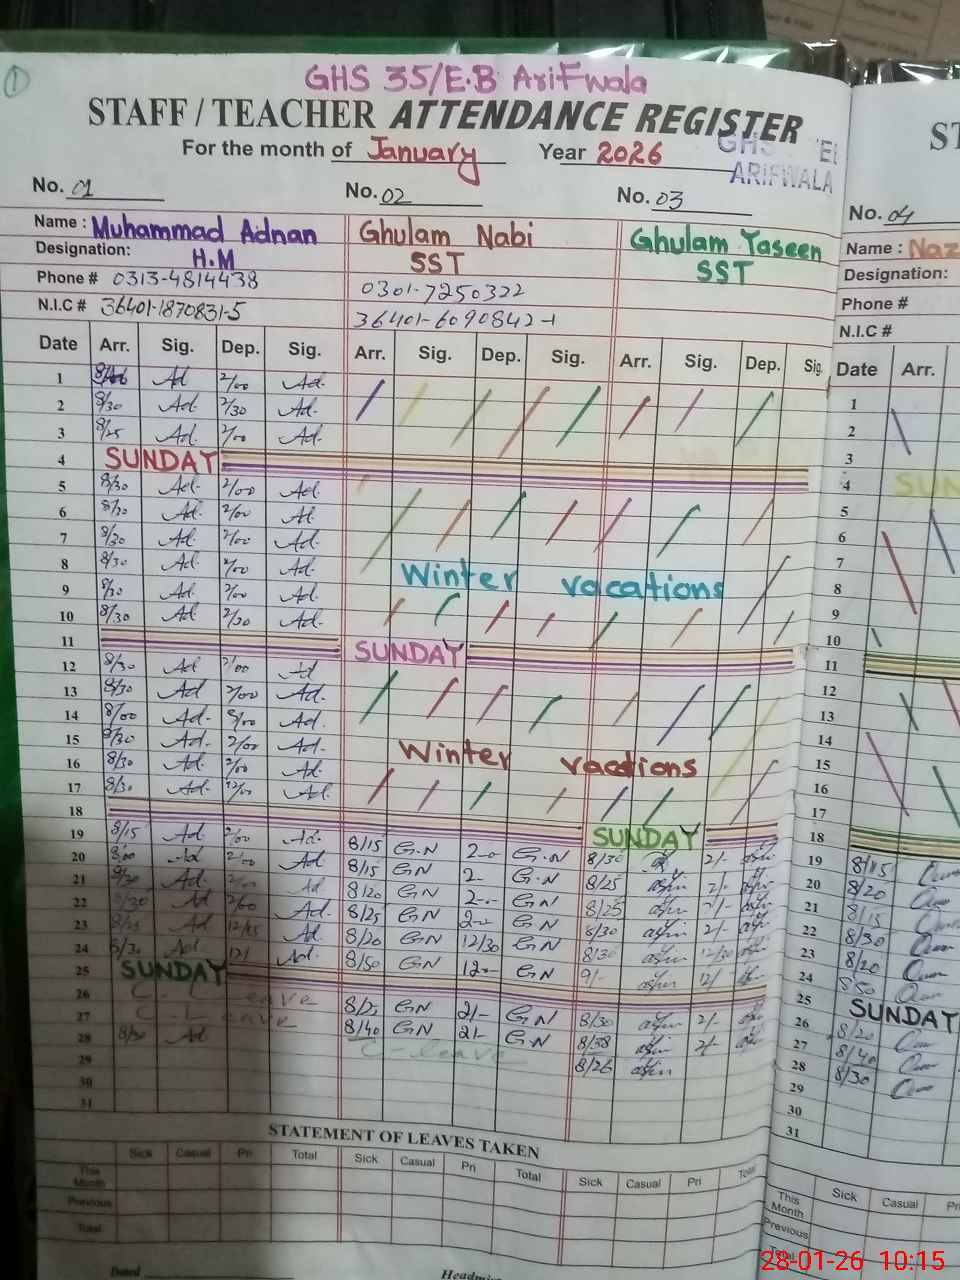 1
GHS 35/E.B Arifwala
STAFF / TEACHER ATTENDANCE REGISTER
For the month of January Year 2026
GHS
ARIFWALA
No. 01 No. 02 No. 03 No. 04
Name : Muhammad Adnan Ghulam Nabi Ghulam Yaseen Name : Naz
Designation: H.M SST SST Designation:
Phone # 0313-4814438 0301-7250322 Phone #
N.I.C # 36401-1870831-5 36401-6090842-1 N.I.C #
Date Arr. Sig. Dep. Sig. Arr. Sig. Dep. Sig. Arr. Sig. Dep. Sig. Date Arr.
1 Ad 2/00 Ad. 1
2 8/30 Ad. 2/30 Ad. 2
3 8/25 Ad. 2/00 Ad. 3
4 SUNDAY 4 SUN
5 8/30 Ad. 2/00 Ad. 5
6 8/30 Ad. 2/00 Ad. 6
7 8/30 Ad. 2/00 Ad. 7
8 8/30 Ad. 2/00 Ad. Winter vacations 8
9 8/30 Ad. 2/00 Ad. 9
10 8/30 Ad. 2/30 Ad. 10
11 SUNDAY 11
12 8/30 Ad 2/00 Ad 12
13 8/30 Ad 2/00 Ad. 13
14 8/00 Ad. Ad. 14
15 8/30 Ad. 2/00 Ad. Winter vacations 15
16 8/30 Ad. 2/00 Ad. 16
17 8/30 Ad. 12/00 Ad. 17
18 SUNDAY 18
19 8/15 Ad. 2/00 Ad. 8/15 G.N 2-0 G.N 8/30 2/- 19 8/15
20 8/00 Ad 2/00 Ad 8/15 GN 2- G.N 8/25 2/- 20 8/20
21 8/30 Ad. 2/00 Ad. 8/20 GN 2-- GN 8/25 2/- 21 8/15
22 8/30 Ad 2/00 Ad. 8/25 GN 2-- GN 8/30 2/- 22 8/30
23 8/25 Ad. 12/15 Ad. 8/20 GN 12/30 GN 8/30 12/30 23 8/20
24 8/30 Ad. 12/ Ad. 8/50 GN 12-- GN 9/- 12/- 24 8/50
25 SUNDAY 25 SUNDAY
26 C. Leave GN 2/- GN 8/30 2/- 26 8/20
27 C Leave 8/40 GN 2/- GN 8/38 2/- 27 8/40
28 8/30 Ad C leave 8/26 28 8/30
29 29
30 30
31 31
STATEMENT OF LEAVES TAKEN
Sick Casual Pri Total Sick Casual Pri Total Sick Casual Pri Total Sick Casual
This Month This Month
Previous Previous
Total Total
Dated
28-01-26 10:15